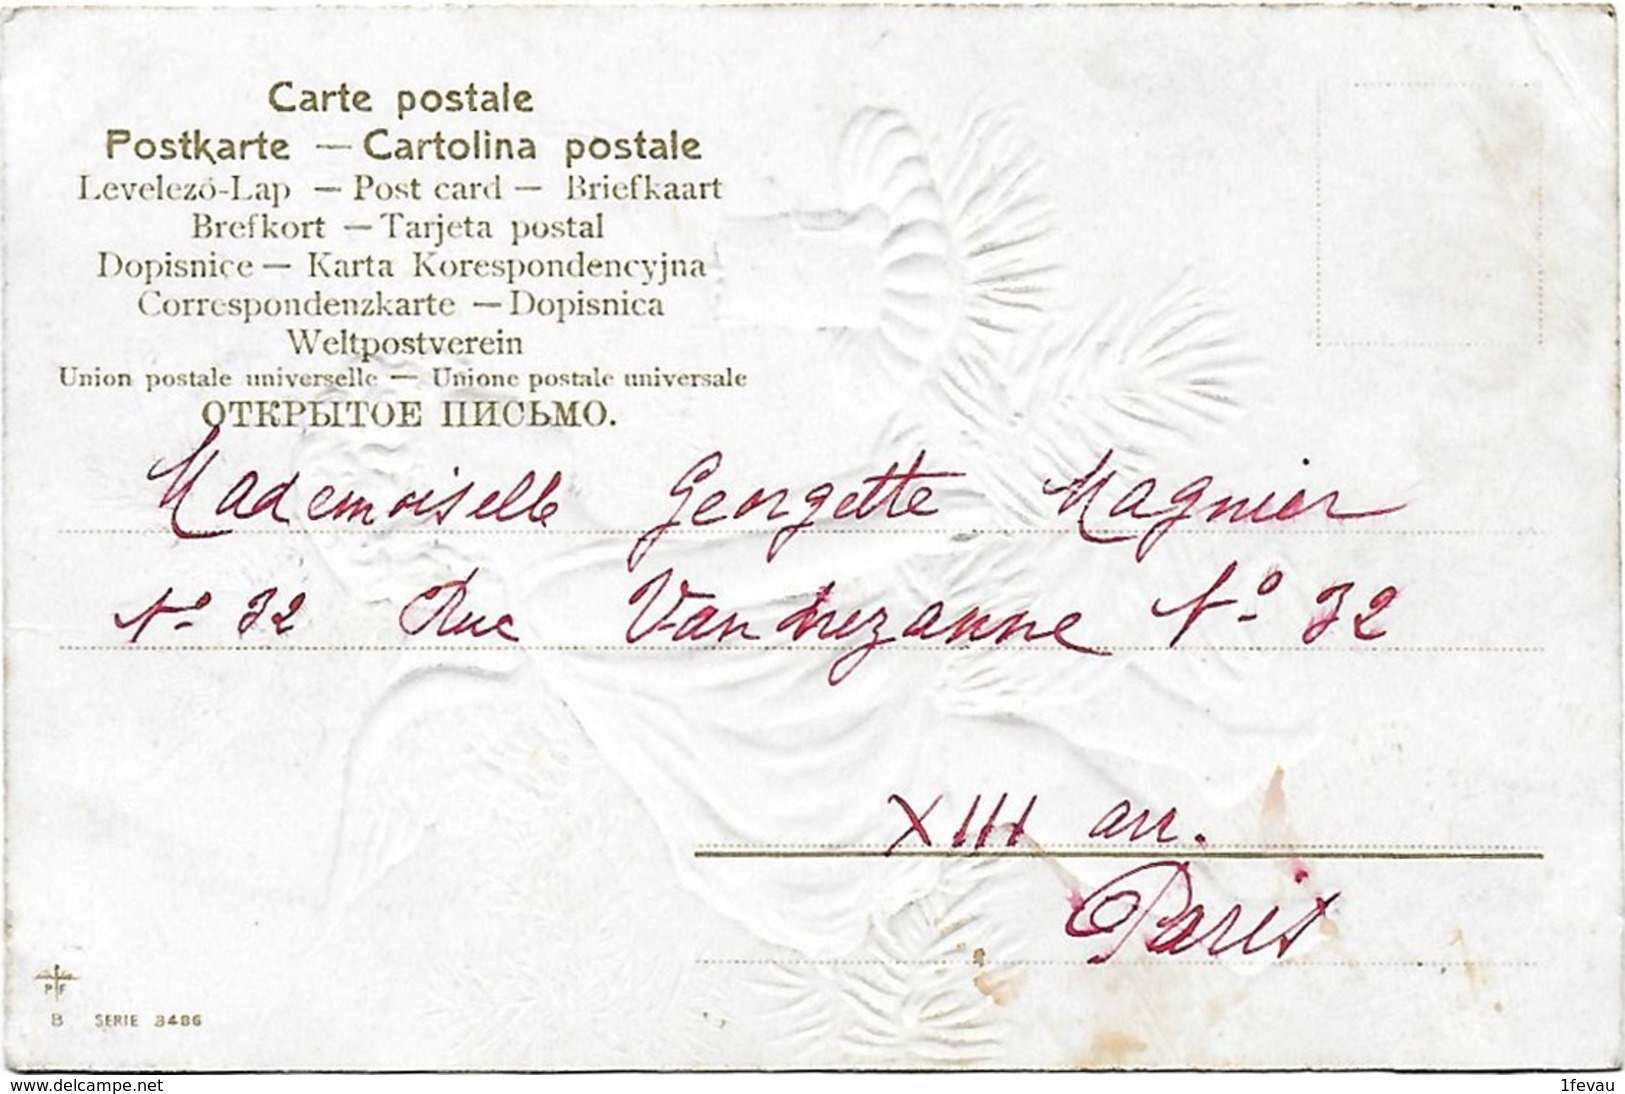 Carte postale
Postkarte — Cartolina postale
Levelező-Lap — Post card — Briefkaart
Brefkort — Tarjeta postal
Dopisnice — Karta Korespondencyjna
Correspondenzkarte — Dopisnica
Weltpostverein
Union postale universelle — Unione postale universale
ОТКРЫТОЕ ПИСЬМО.
Mademoiselle Georgette Magnier
No 32 Rue Vandrezanne No 32
XIII arr.
Paris
PF
B SERIE 3486
www.delcampe.net
1fevau